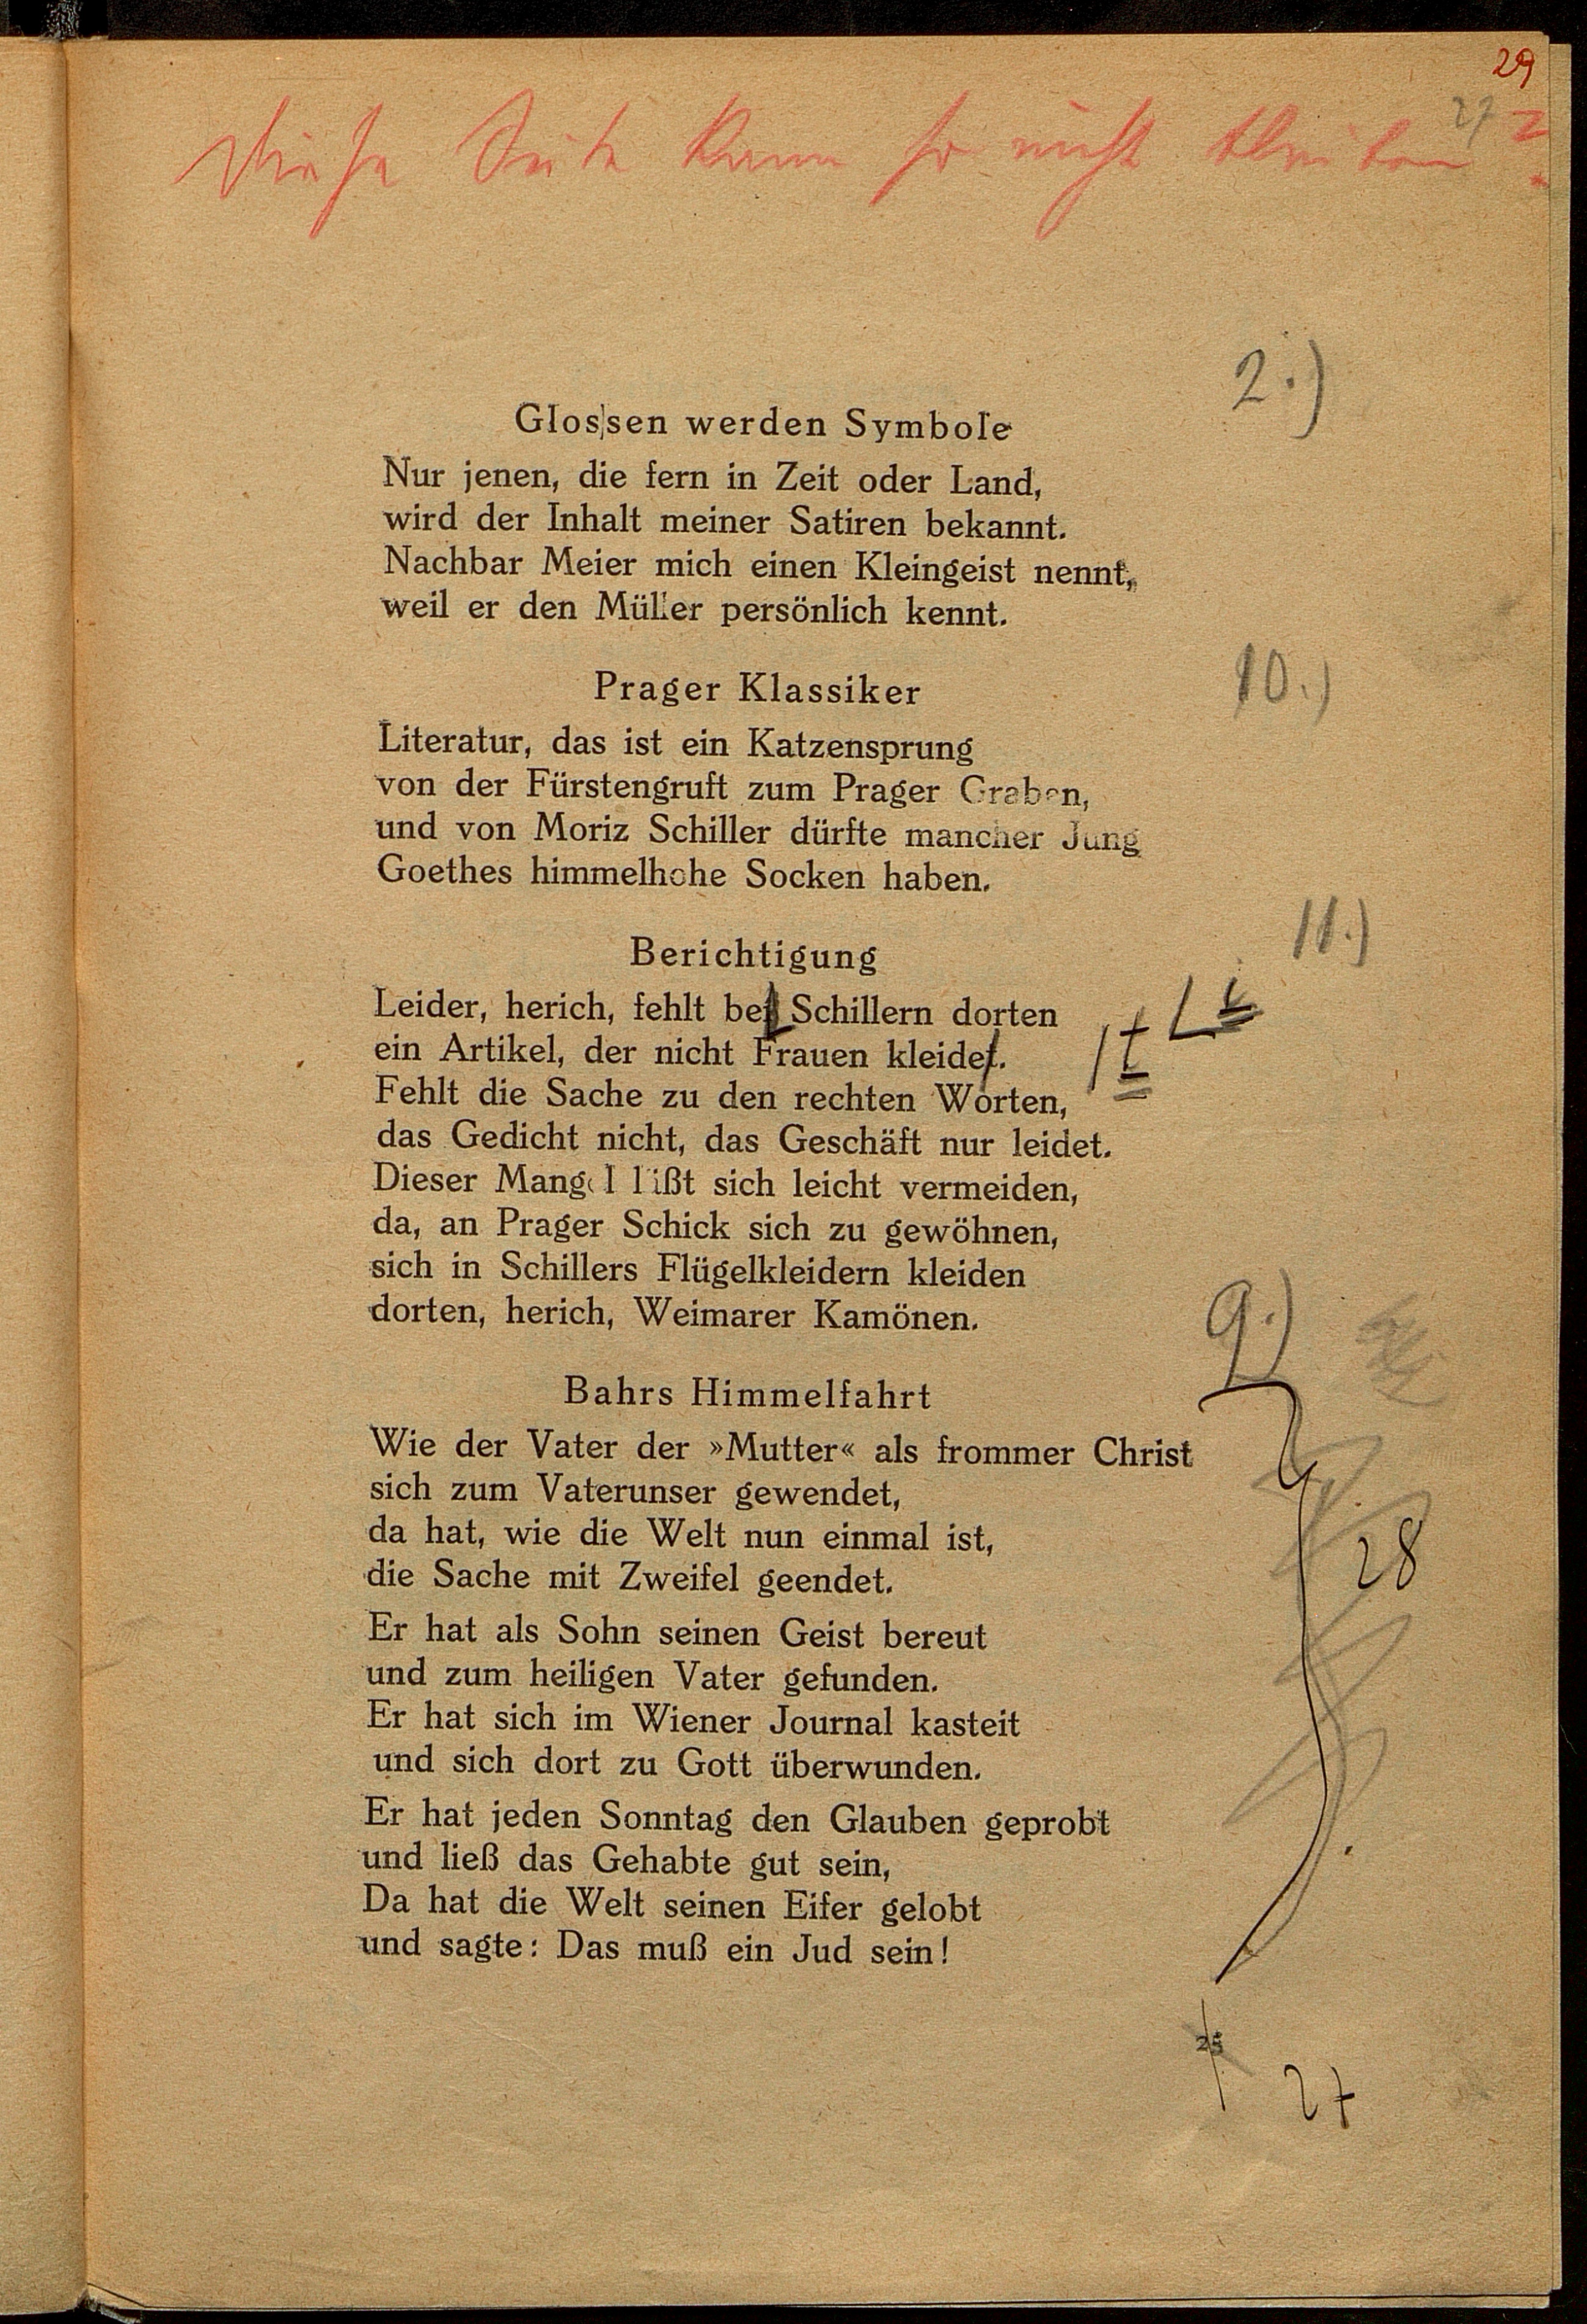 29
27
Diese Seite kann so nicht bleiben
2.)
Glossen werden Symbole
Nur jenen, die fern in Zeit oder Land,
wird der Inhalt meiner Satiren bekannt.
Nachbar Meier mich einen Kleingeist nennt,
weil er den Müller persönlich kennt.
10.)
Prager Klassiker
Literatur, das ist ein Katzensprung
von der Fürstengruft zum Prager Graben,
und von Moriz Schiller dürfte mancher Jung
Goethes himmelhohe Socken haben.
11.)
Berichtigung
Leider, herich, fehlt bei Schillern dorten
ein Artikel, der nicht Frauen kleidet.
Fehlt die Sache zu den rechten Worten,
das Gedicht nicht, das Geschäft nur leidet.
Dieser Mangel läßt sich leicht vermeiden,
da, an Prager Schick sich zu gewöhnen,
sich in Schillers Flügelkleidern kleiden
dorten, herich, Weimarer Kamönen.
9.)
Bahrs Himmelfahrt
Wie der Vater der »Mutter« als frommer Christ
sich zum Vaterunser gewendet,
da hat, wie die Welt nun einmal ist,
die Sache mit Zweifel geendet.
28
Er hat als Sohn seinen Geist bereut
und zum heiligen Vater gefunden.
Er hat sich im Wiener Journal kasteit
und sich dort zu Gott überwunden.
Er hat jeden Sonntag den Glauben geprobt
und ließ das Gehabte gut sein,
Da hat die Welt seinen Eifer gelobt
und sagte: Das muß ein Jud sein!
25
27